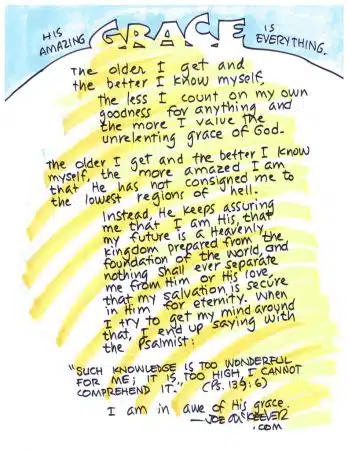 HIS AMAZING GRACE IS EVERYTHING.
The older I get and
the better I know myself,
the less I count on my own
goodness for anything and
the more I value the
unrelenting grace of God.
The older I get and the better I know
myself, the more amazed I am
that He has not consigned me to
the lowest regions of hell.
Instead, He keeps assuring
me that I am His, that
my future is a Heavenly
kingdom prepared from the
foundation of the world, and
nothing shall ever separate
me from Him or His love,
that my salvation is secure
in Him for eternity. When
I try to get my mind around
that, I end up saying with
the Psalmist:
"SUCH KNOWLEDGE IS TOO WONDERFUL
FOR ME; IT IS TOO HIGH, I CANNOT
COMPREHEND IT." (Ps. 139:6)
I am in awe of His grace.
—JOE McKEEVER
.COM